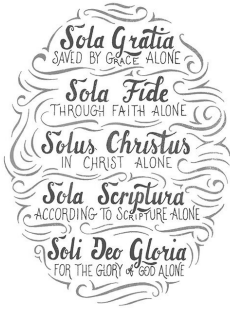 Sola Gratia
SAVED BY GRACE ALONE
Sola Fide
THROUGH FAITH ALONE
Solus Christus
IN CHRIST ALONE
Sola Scriptura
ACCORDING TO SCRIPTURE ALONE
Soli Deo Gloria
FOR THE GLORY of GOD ALONE